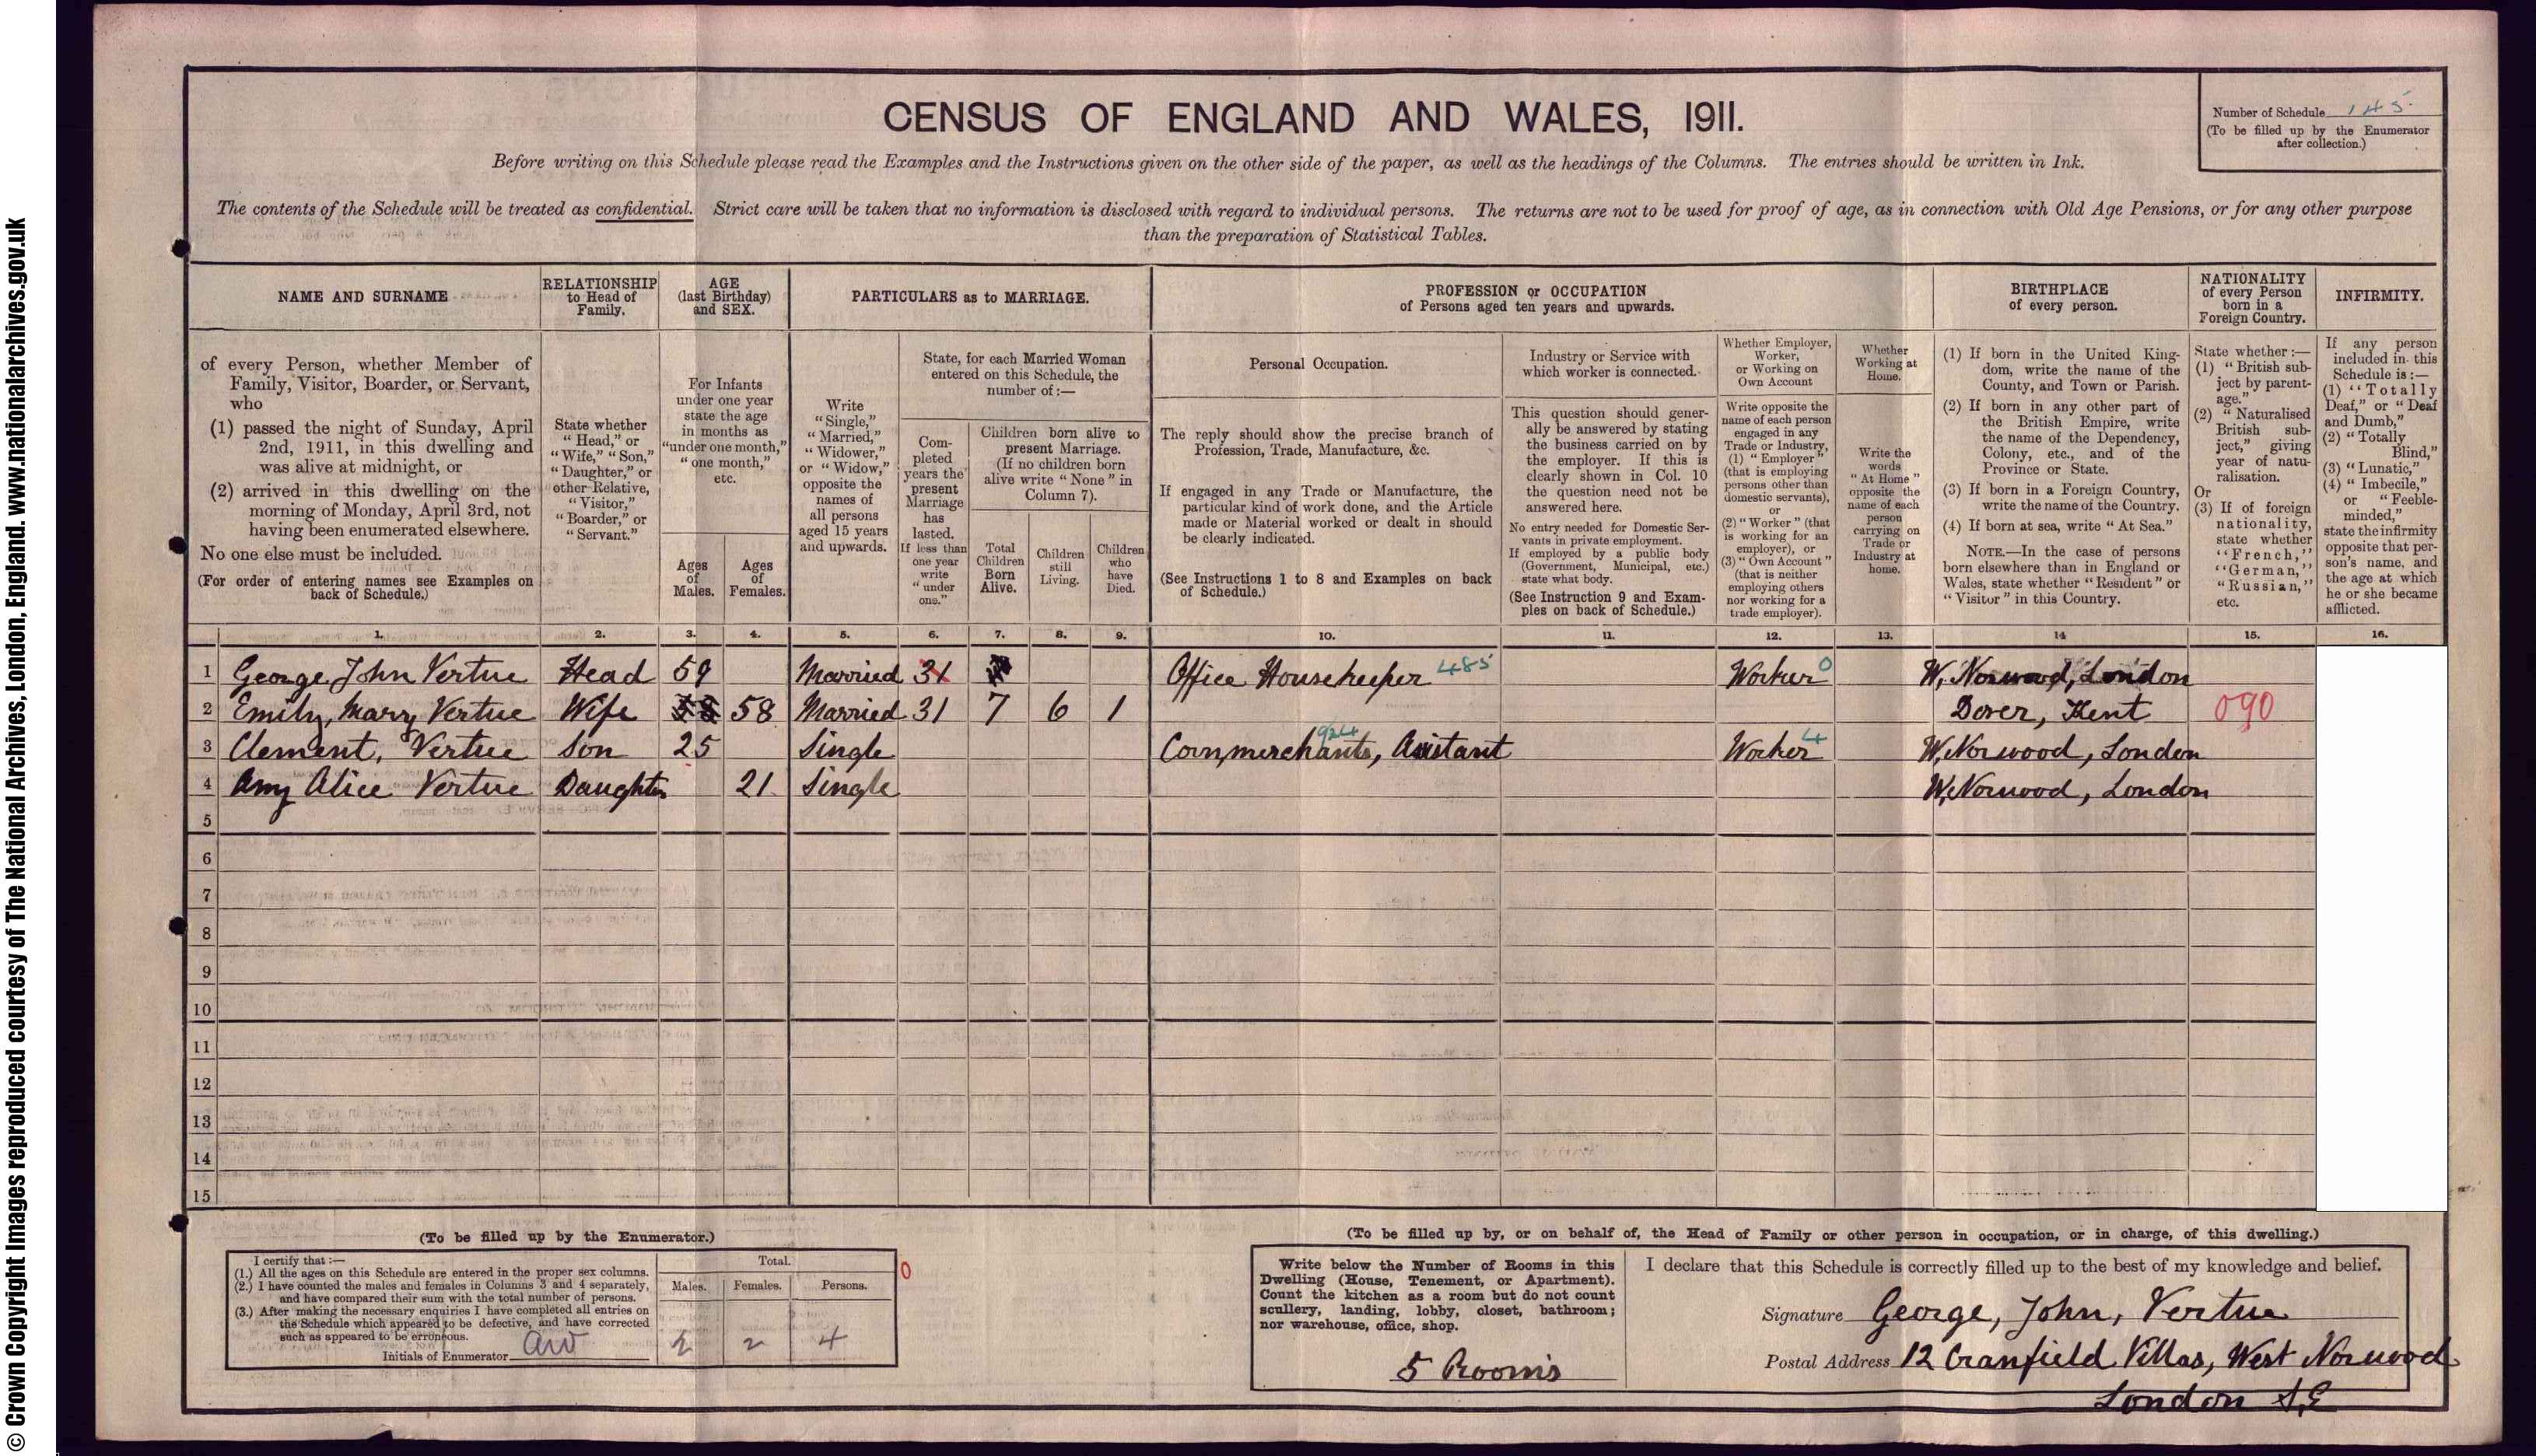 © Crown Copyright Images reproduced courtesy of The National Archives, London, England. www.nationalarchives.gov.uk
CENSUS OF ENGLAND AND WALES, 1911.
Number of Schedule 145
(To be filled up by the Enumerator
after collection.)
Before writing on this Schedule please read the Examples and the Instructions given on the other side of the paper, as well as the headings of the Columns. The entries should be written in Ink.
The contents of the Schedule will be treated as confidential. Strict care will be taken that no information is disclosed with regard to individual persons. The returns are not to be used for proof of age, as in connection with Old Age Pensions, or for any other purpose
than the preparation of Statistical Tables.
NAME AND SURNAME
of every Person, whether Member of
Family, Visitor, Boarder, or Servant,
who
(1) passed the night of Sunday, April
2nd, 1911, in this dwelling and
was alive at midnight, or
(2) arrived in this dwelling on the
morning of Monday, April 3rd, not
having been enumerated elsewhere.
No one else must be included.
(For order of entering names see Examples on
back of Schedule.)
RELATIONSHIP
to Head of
Family.
State whether
"Head," or
"Wife," "Son,"
"Daughter," or
other Relative,
"Visitor,"
"Boarder," or
"Servant."
AGE
(last Birthday)
and SEX.
For Infants
under one year
state the age
in months as
"under one month,"
"one month,"
etc.
Ages
of
Males.
Ages
of
Females.
PARTICULARS as to MARRIAGE.
Write
"Single,"
"Married,"
"Widower,"
or "Widow,"
opposite the
names of
all persons
aged 15 years
and upwards.
State, for each Married Woman
entered on this Schedule, the
number of:—
Com-
pleted
years the
present
Marriage
has
lasted.
If less than
one year
write
"under
one."
Children born alive to
present Marriage.
(If no children born
alive write "None" in
Column 7).
Total
Children
Born
Alive.
Children
still
Living.
Children
who
have
Died.
PROFESSION or OCCUPATION
of Persons aged ten years and upwards.
Personal Occupation.
The reply should show the precise branch of
Profession, Trade, Manufacture, &c.
If engaged in any Trade or Manufacture, the
particular kind of work done, and the Article
made or Material worked or dealt in should
be clearly indicated.
(See Instructions 1 to 8 and Examples on back
of Schedule.)
Industry or Service with
which worker is connected.
This question should gener-
ally be answered by stating
the business carried on by
the employer. If this is
clearly shown in Col. 10
the question need not be
answered here.
No entry needed for Domestic Ser-
vants in private employment.
If employed by a public body
(Government, Municipal, etc.)
state what body.
(See Instruction 9 and Exam-
ples on back of Schedule.)
Whether Employer,
Worker,
or Working on
Own Account
Write opposite the
name of each person
engaged in any
Trade or Industry,
(1) "Employer"
(that is employing
persons other than
domestic servants),
or
(2) "Worker" (that
is working for an
employer), or
(3) "Own Account"
(that is neither
employing others
nor working for a
trade employer).
Whether
Working at
Home.
Write the
words
"At Home"
opposite the
name of each
person
carrying on
Trade or
Industry at
home.
BIRTHPLACE
of every person.
(1) If born in the United King-
dom, write the name of the
County, and Town or Parish.
(2) If born in any other part of
the British Empire, write
the name of the Dependency,
Colony, etc., and of the
Province or State.
(3) If born in a Foreign Country,
write the name of the Country.
(4) If born at sea, write "At Sea."
NOTE.—In the case of persons
born elsewhere than in England or
Wales, state whether "Resident" or
"Visitor" in this Country.
NATIONALITY
of every Person
born in a
Foreign Country.
State whether:—
(1) "British sub-
ject by parent-
age."
(2) "Naturalised
British sub-
ject," giving
year of natu-
ralisation.
Or
(3) If of foreign
nationality,
state whether
"French,"
"German,"
"Russian,"
etc.
INFIRMITY.
If any person
included in this
Schedule is:—
(1) "Totally
Deaf," or "Deaf
and Dumb,"
(2) "Totally
Blind,"
(3) "Lunatic,"
(4) "Imbecile,"
or "Feeble-
minded,"
state the infirmity
opposite that per-
son's name, and
the age at which
he or she became
afflicted.
1. 2. 3. 4. 5. 6. 7. 8. 9. 10. 11. 12. 13. 14 15. 16.
1 George John Vertue Head 59 Married 31 Office Housekeeper 485 Worker 0 W, Norwood, London
2 Emily, Mary, Vertue Wife 58 Married 31 7 6 1 Dover, Kent 090
3 Clement, Vertue Son 25 Single Cornmerchants, Assistant 924 Worker 4 W, Norwood, London
4 Amy Alice Vertue Daughter 21 Single W, Norwood, London
5
6
7
8
9
10
11
12
13
14
15
(To be filled up by the Enumerator.)
I certify that:—
(1.) All the ages on this Schedule are entered in the proper sex columns.
(2.) I have counted the males and females in Columns 3 and 4 separately,
and have compared their sum with the total number of persons.
(3.) After making the necessary enquiries I have completed all entries on
the Schedule which appeared to be defective, and have corrected
such as appeared to be erroneous.
Initials of Enumerator aw
Total.
Males. Females. Persons.
2 2 4
0
(To be filled up by, or on behalf of, the Head of Family or other person in occupation, or in charge, of this dwelling.)
Write below the Number of Rooms in this
Dwelling (House, Tenement, or Apartment).
Count the kitchen as a room but do not count
scullery, landing, lobby, closet, bathroom;
nor warehouse, office, shop.
5 Rooms
I declare that this Schedule is correctly filled up to the best of my knowledge and belief.
Signature George, John, Vertue
Postal Address 12 Cranfield Villas, West Norwood
London S,E